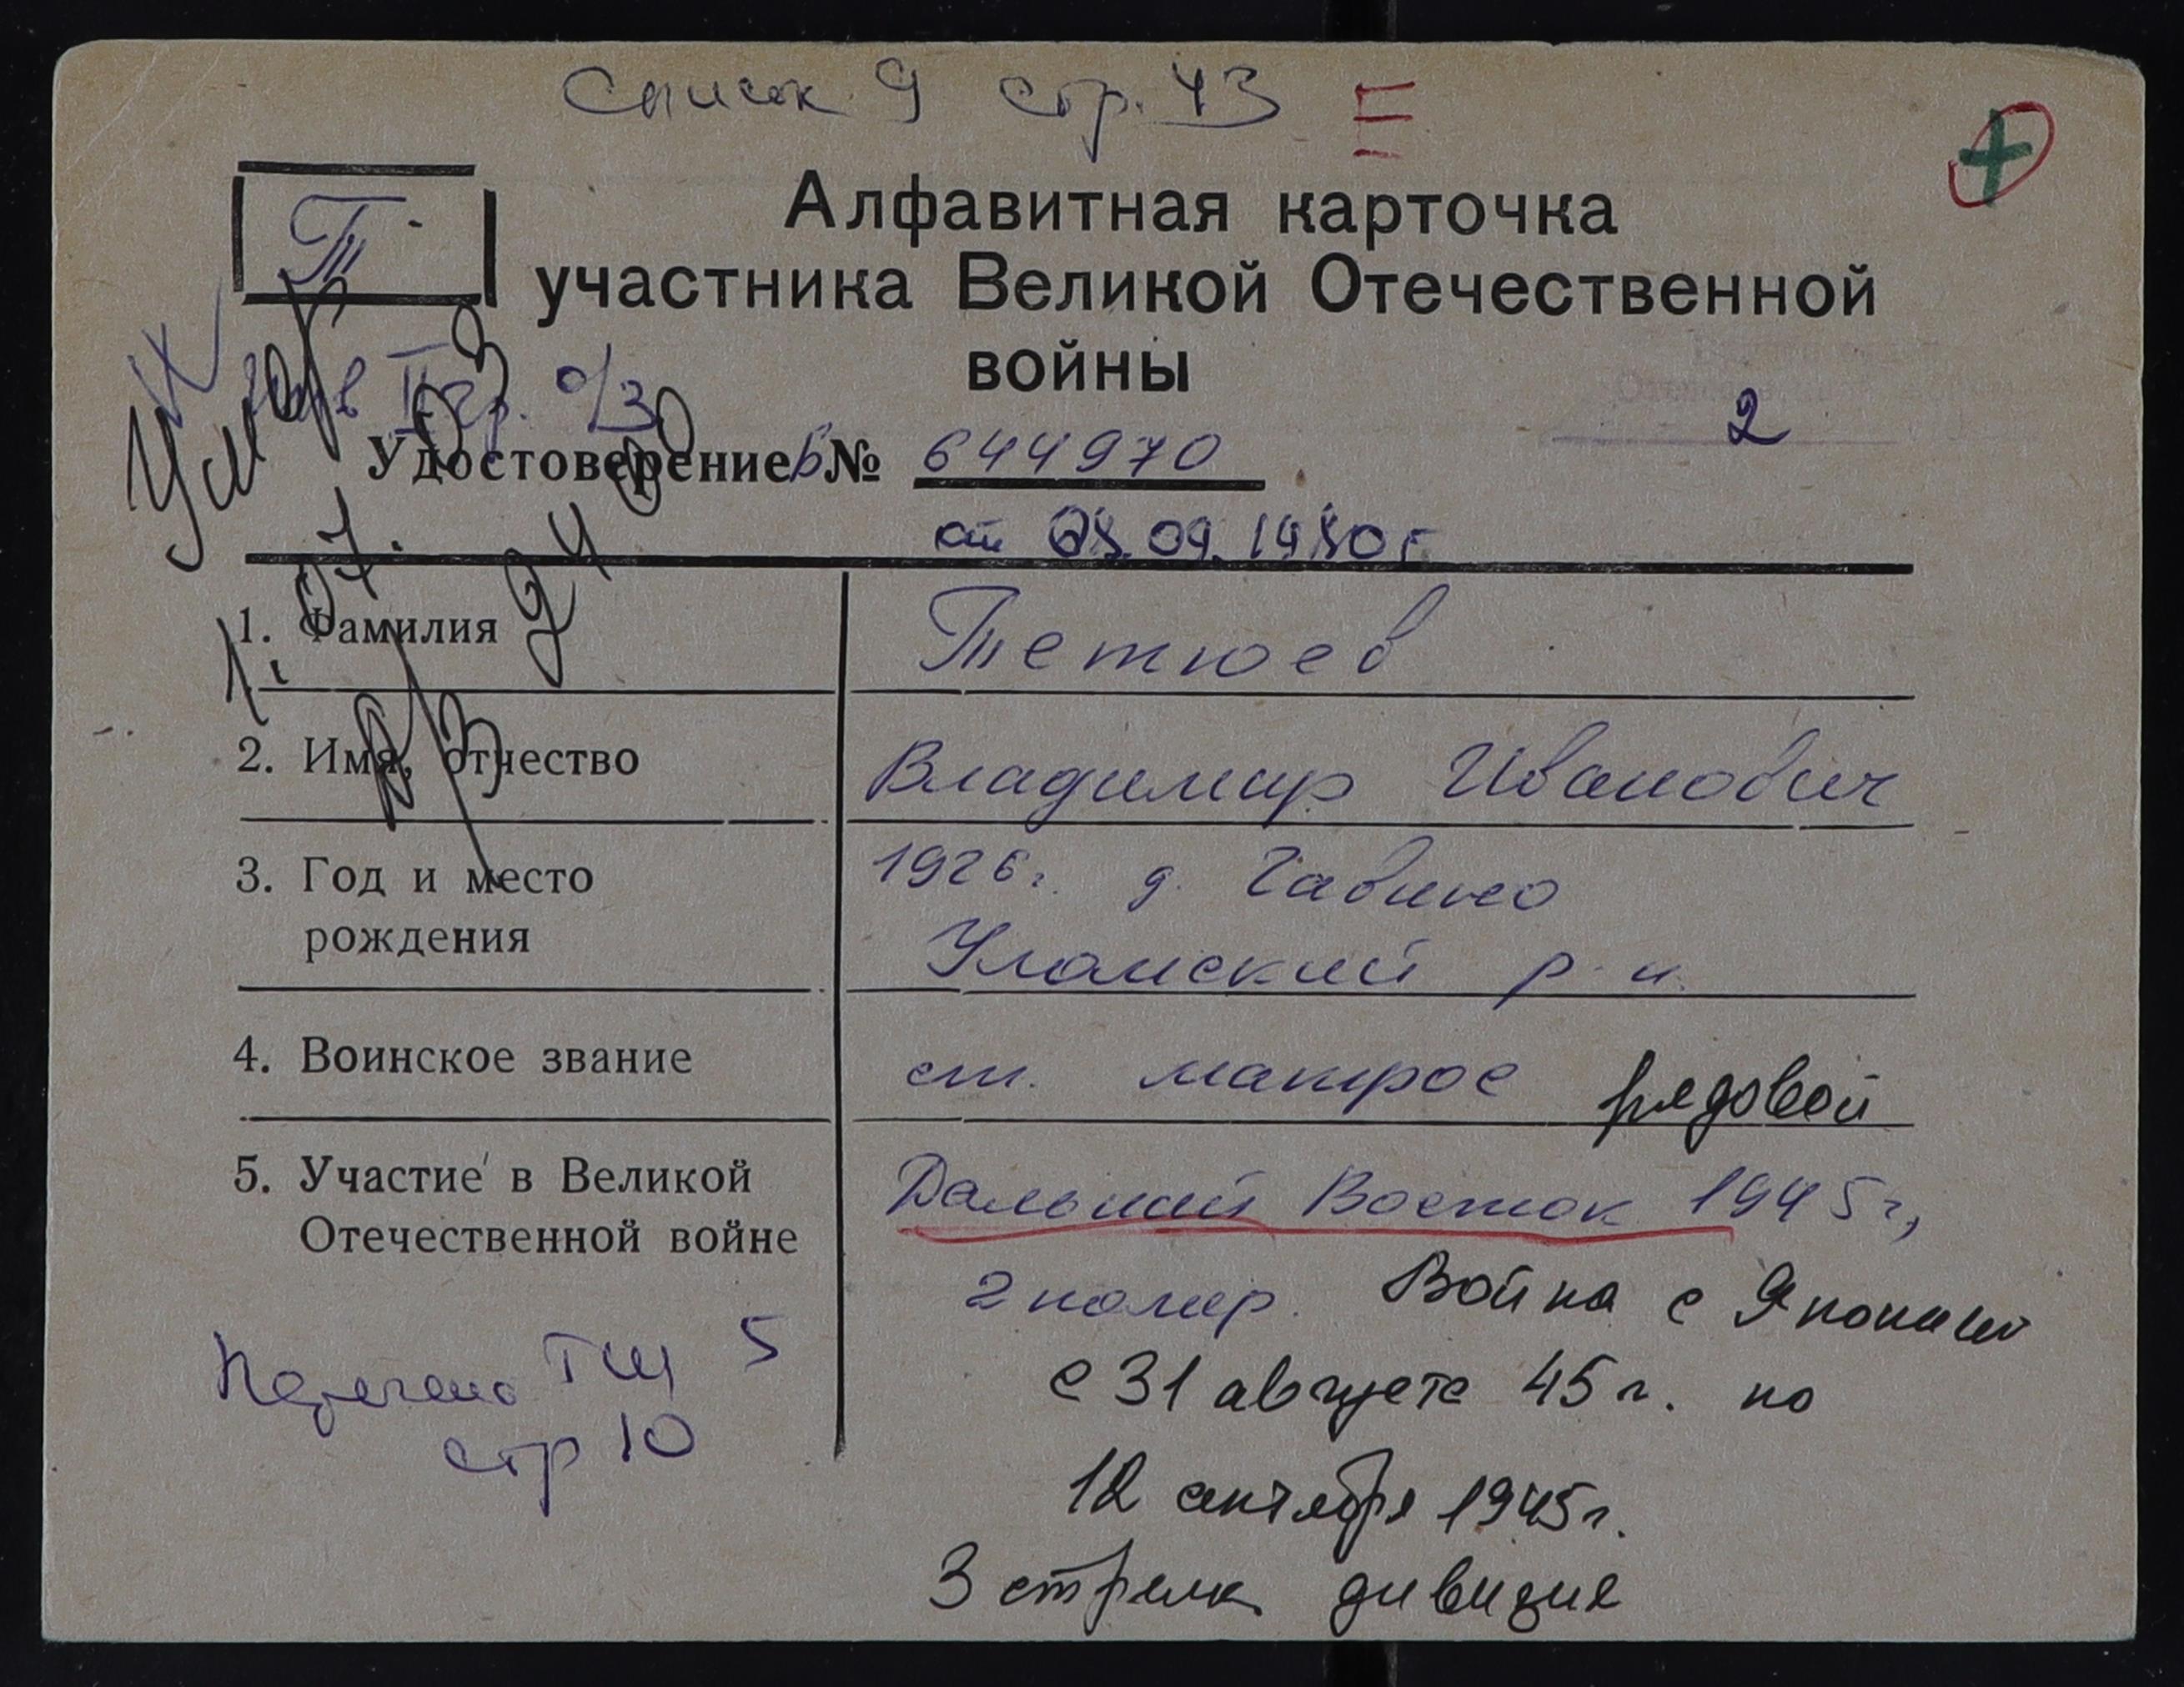 Список 9 стр. 43
Т
Алфавитная карточка
участника Великой Отечественной
войны
2
II гр. о/з
Умер
Удостоверение Б № 644970
от 09.1980 г
1. Фамилия Тетюев
2. Имя, отчество Владимир Иванович
3. Год и место рождения 1926 г. д. Гавино
Уланский р-н.
4. Воинское звание ст. матрос рядовой
5. Участие в Великой Отечественной войне Дальний Восток 1945 г,
2 номер. Война с Японией
с 31 августа 45 г. по
12 октября 1945 г.
3 стрелк дивизия
5
стр 10